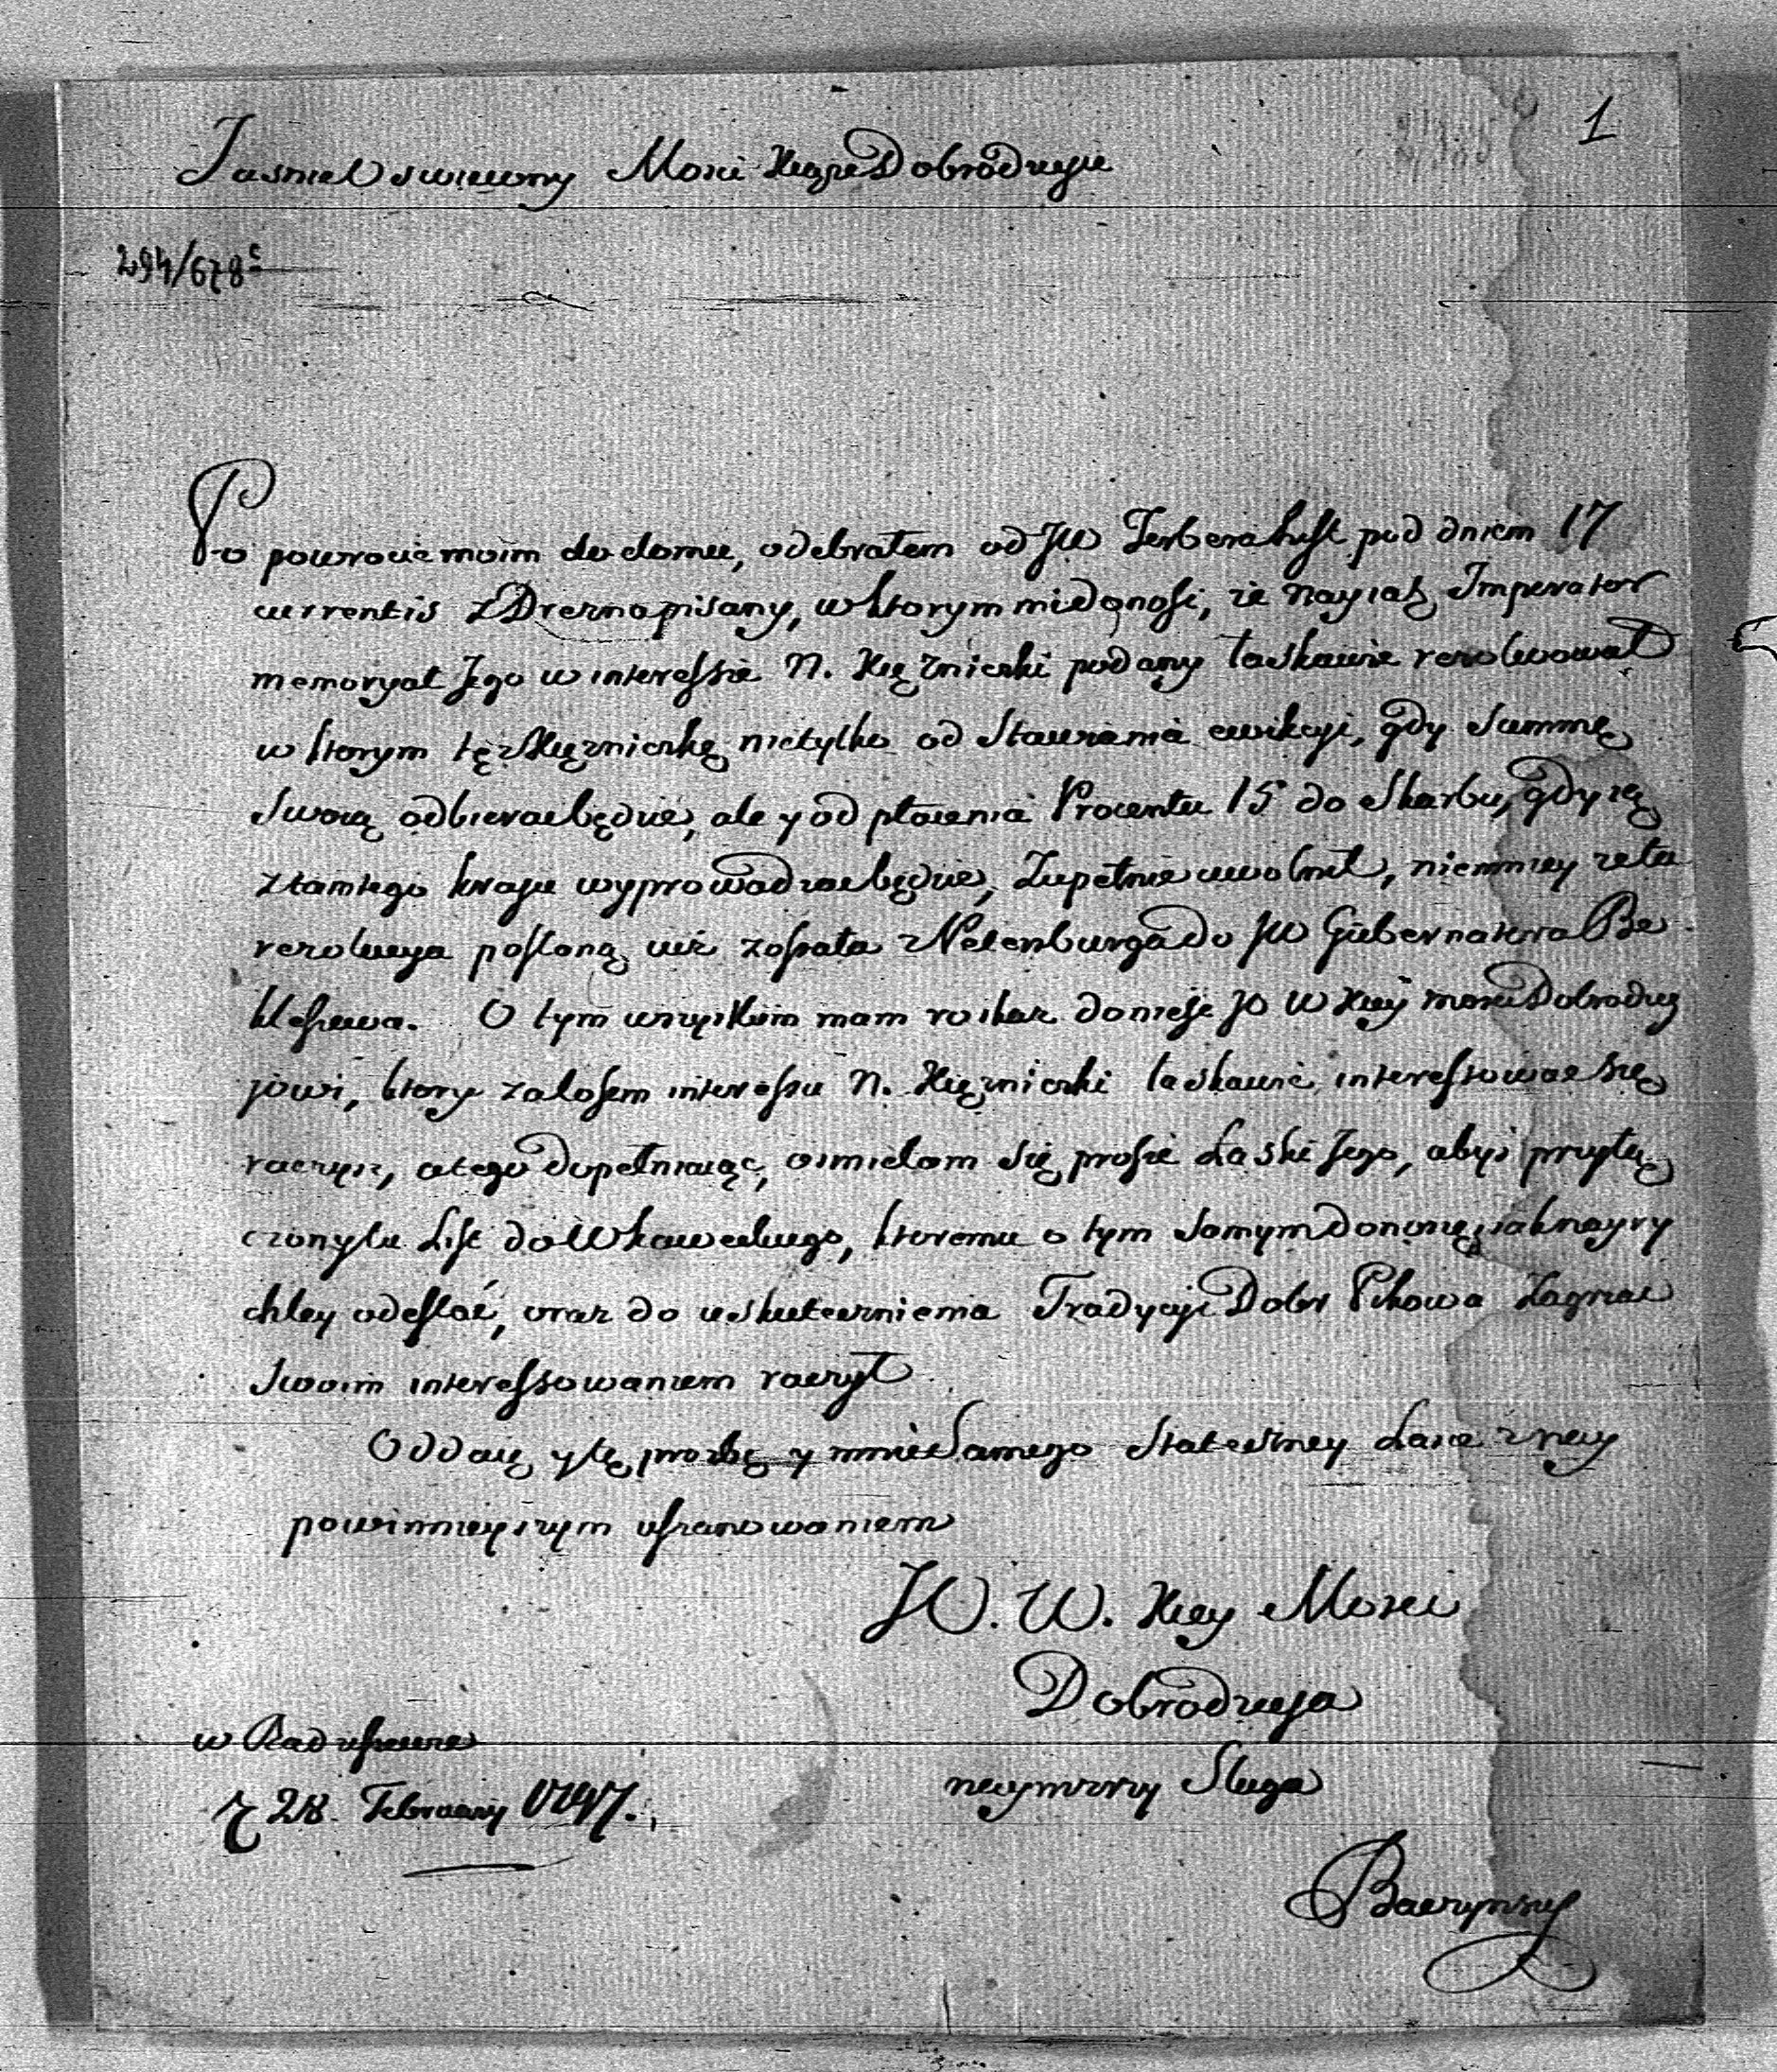 1
Jasnie Oswiecony Mosci Xiąze Dobrodzieju
294/678c
Po powrocie moim do domu, odebrałem od JW Ferbera list pod dniem 17
currentis z Drezna pisany, w ktorym mi donosi, ze Nayias Imperator
memoryał Jego w interessie N. Xięzniczki podany łaskawie rezolwował
w ktorym tęz Xięzniczkę nietylko od stawienia ewikcyi, gdy Summę
Swoią odbierac będzie, ale y od płacenia Procentu 15 do Skarbu, gdy ią
z tamtego kraju wyprowadzac będzie, Zupełnie uwolnił, niemniey ze ta
rezolucya posłaną iuz została z Petersburga do JW Gubernatora Be
kleszewa. O tym wszystkim mam roskaz doniesc JO W Xcey Mosci Dobrodzie
jowi, ktory za losem interessu N. Xięzniczki łaskawie interessowac się
raczysz, a tego dopełniaiąc, osmielam się prosic Łaski Jego, abys przyłą
czony tu List do W kaweckiego, ktoremu o tym samym donoszę, iak nayry
chley odesłać, oraz do uskutecznienia Tradycyi Dobr Pikowa Zagrzac
Swoim interessowaniem raczył
Oddaię y tę prozbę y mnie Samego Stateczney Łasce z nay
powinnieyszym uszanowaniem
JO. W. Xcey Mosci
Dobrodzieja
nayniszszy Sluga
w Radziszewie
d 28 February 1797.
Baczynski